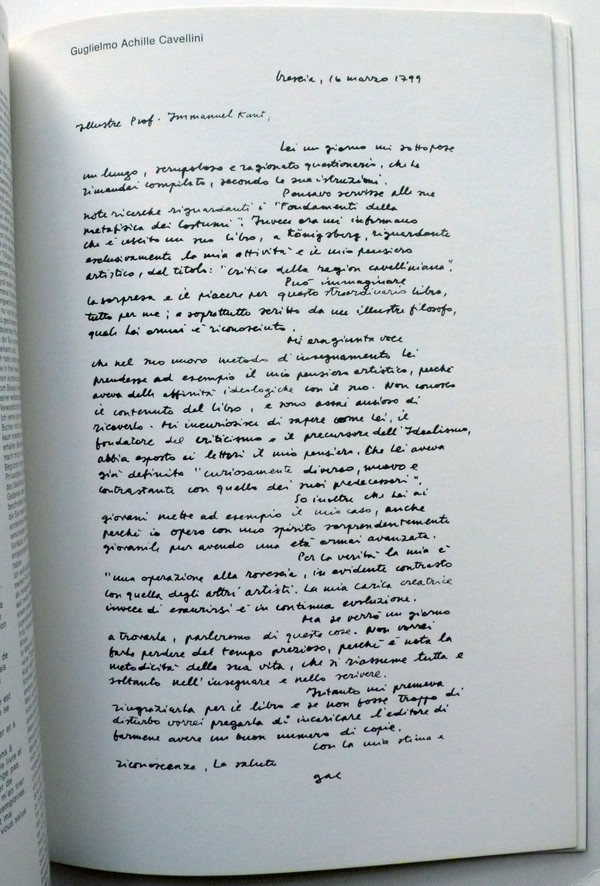 Guglielmo Achille Cavellini
Brescia, 16 marzo 1799
Illustre Prof. Immanuel Kant,
Lei un giorno mi sottopose
un lungo, scrupoloso e ragionato questionario, che le
rimandai compilato, secondo le sue istruzioni.
Pensavo servisse alle sue
note ricerche riguardanti i "Fondamenti della
metafisica dei costumi". Invece ora mi informano
che è uscito un suo libro, a Königsberg, riguardante
esclusivamente la mia attività e il mio pensiero
artistico, dal titolo: "Critica della ragion cavelliniana".
Può immaginare
la sorpresa e il piacere per questo straordinario libro,
tutto per me; e soprattutto scritto da un illustre filosofo,
quale Lei ormai è riconosciuto.
Mi era giunta voce
che nel suo nuovo metodo d'insegnamento Lei
prendesse ad esempio il mio pensiero artistico, perché
aveva delle affinità ideologiche con il suo. Non conosco
il contenuto del libro, e sono assai ansioso di
riceverlo. Mi incuriosisce di sapere come Lei, il
fondatore del criticismo e il precursore dell'Idealismo,
abbia esposto ai lettori il mio pensiero. Che Lei aveva
già definito "curiosamente diverso, nuovo e
contrastante con quello dei suoi predecessori".
So inoltre che Lei ai
giovani mette ad esempio il mio caso, anche
perché io opero con uno spirito sorprendentemente
giovanile pur avendo una età ormai avanzata.
Per la verità la mia è
"una operazione alla rovescia", in evidente contrasto
con quella degli altri artisti. La mia carica creatrice
invece di esaurirsi è in continua evoluzione.
Ma se verrò un giorno
a trovarla, parleremo di queste cose. Non vorrei
farle perdere del tempo prezioso, perché è nota la
metodicità della sua vita, che si riassume tutta e
soltanto nell'insegnare e nello scrivere.
Intanto mi premeva
ringraziarla per il libro e se non fosse troppo di
disturbo vorrei pregarla di incaricare l'editore di
farmene avere un buon numero di copie.
con la mia stima e
riconoscenza, La saluto
gac